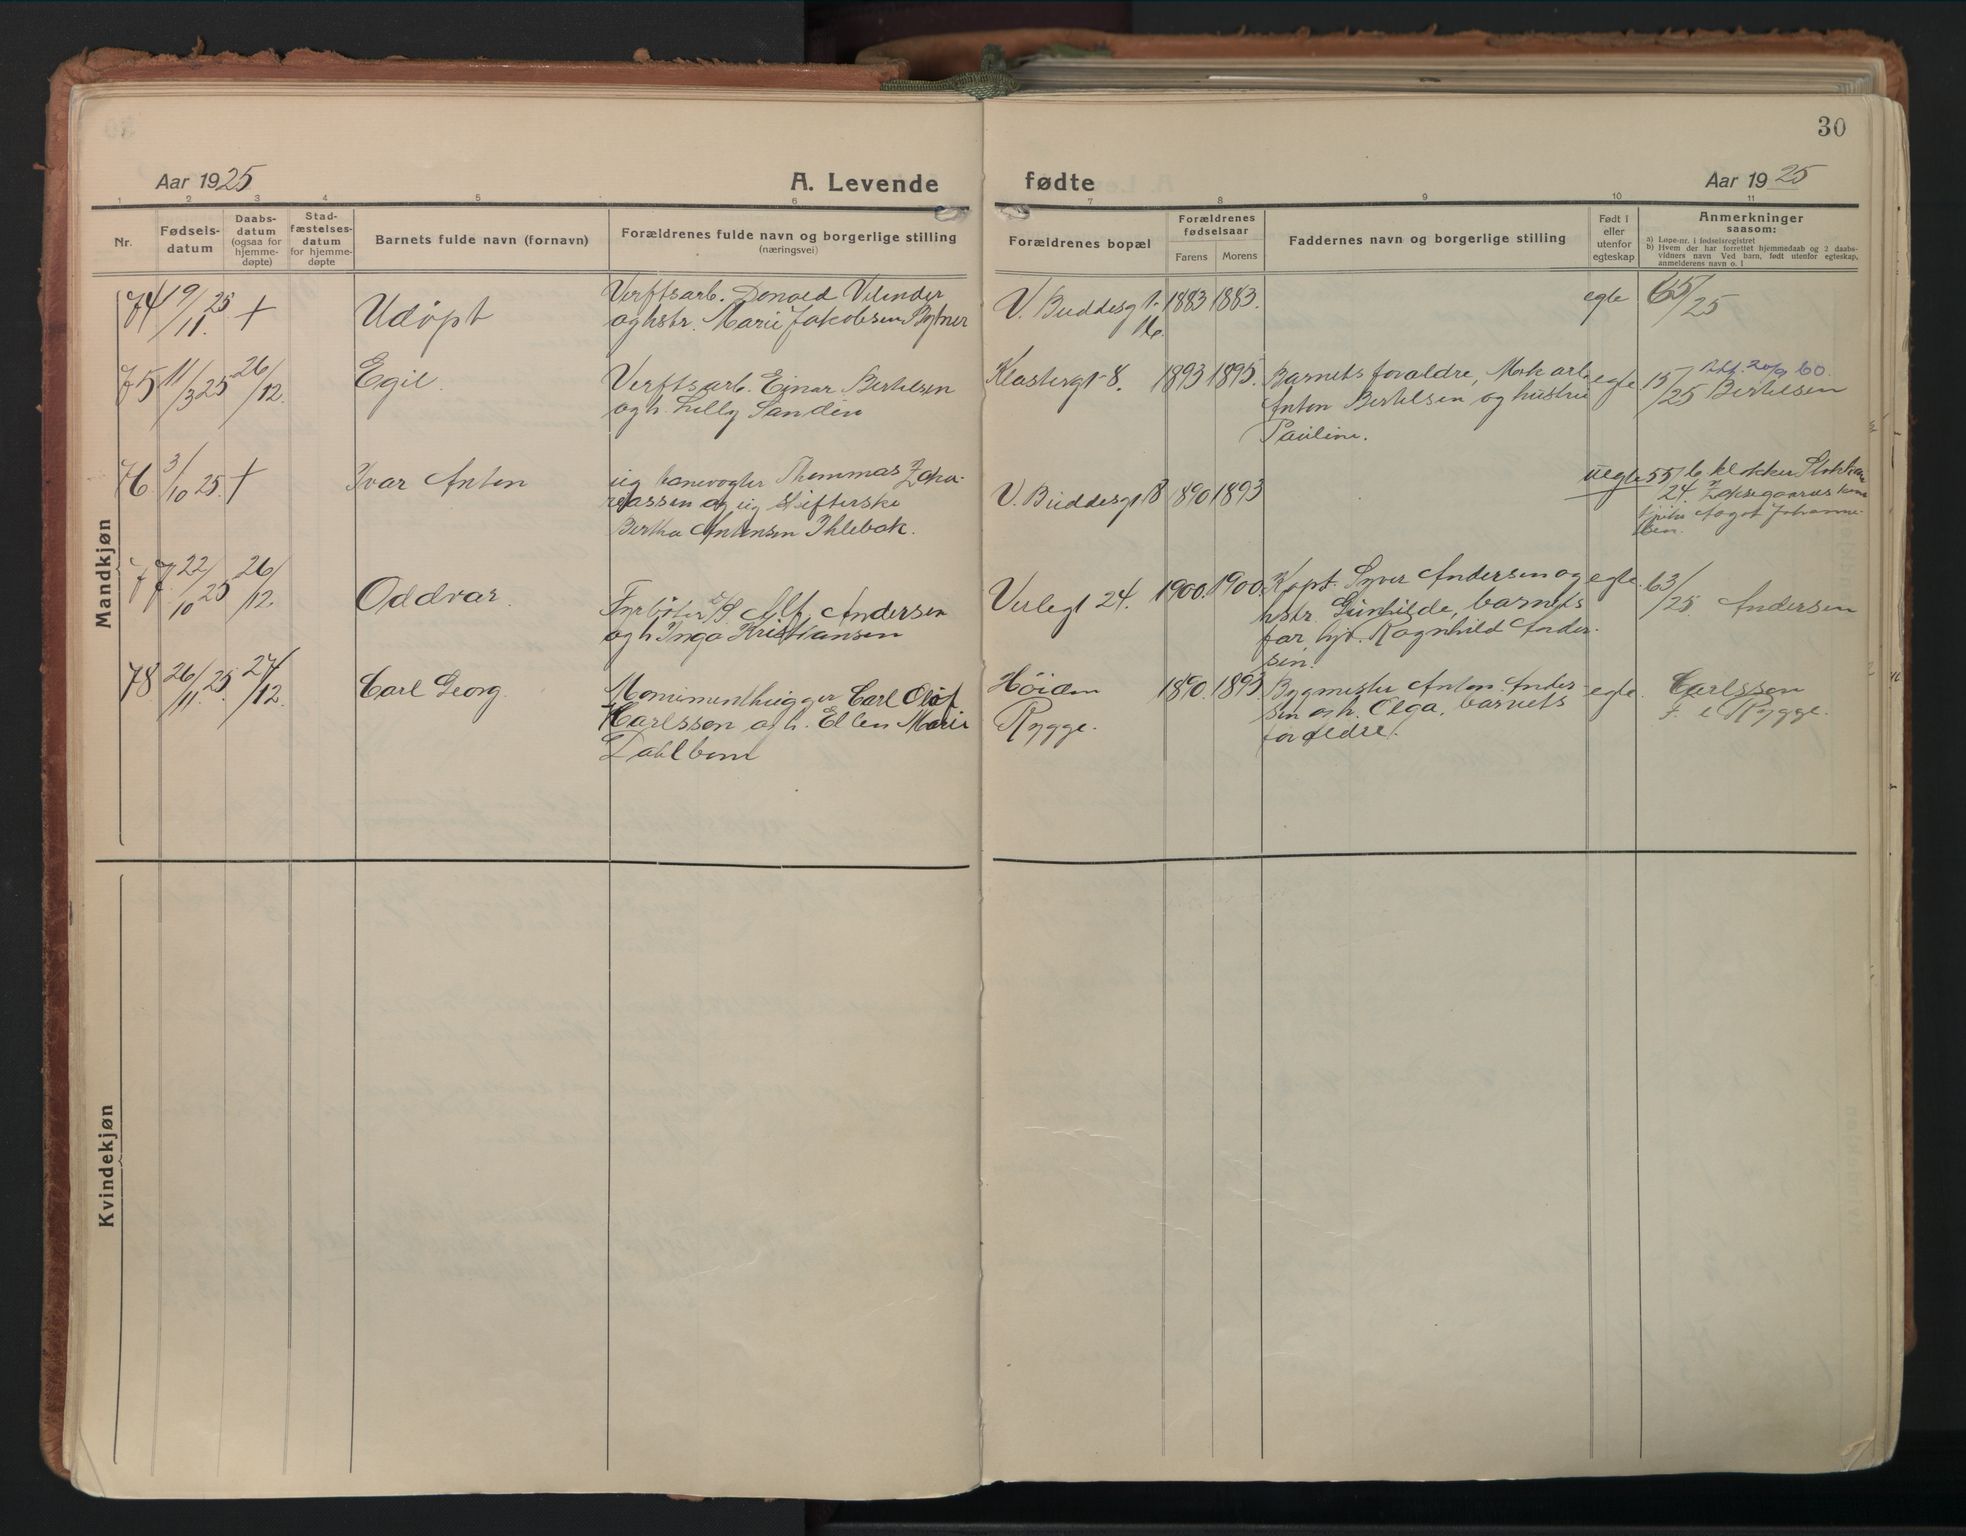 30
Aar 1925
A. Levende
fødte
Aar 1925
1 2 3 4 5 6 7 8 9 10 11
Nr.
Fødsels-
datum
Daabs-
datum
(ogsaa for
hjemme-
døpte)
Stad-
fæstelses-
datum
for hjemme-
døpte
Barnets fulde navn (fornavn)
Forældrenes fulde navn og borgerlige stilling
(næringsvei)
Forældrenes bopæl
Forældrenes
fødselsaar
Farens Morens
Faddernes navn og borgerlige stilling
Født i
eller
utenfor
egteskap
Anmerkninger
saasom:
a) Løpe-nr. i fødselsregistret
b) Hvem der har forrettet hjemmedaab og 2 daabs-
vidners navn Ved barn, født utenfor egteskap,
anmelderens navn o. l
Mandkjøn
74 19/11. 25 + Udøpt
Verftsarb. Donald Velinder
og hstr. Marie Jakobsen
V. Buddesgt.
16.
1883 1883.
egte 65/25
75 11/3 25 26/12. Egil.
Verftsarb. Einar Bertelsen
og h. Lilly Sandin
Klostergt 8. 1893 1895.
Barnets forældre, arb.
Anton Bertelsen og hustru
Pauline.
egte 15/25 20/9 60.
Bertelsen
76 3/10 25. + Ivar Anton
ug banevogter Thommas Zaka-
riassen og ug
Bertha Antonsen Ihlebæk.
V. Buddesgt 18 1890 1893
uegte 55/24. b klokker
Johanne-
sen.
77. 22/10 25 26/12. Oddvar.
Fyrbøter D/S Alf Andersen
og h. Inga Kristiansen
Verlegt 24. 1900. 1900.
Kapt. Syver Andersen og
hstr. Gunhilde, barnets
far, Ragnhild Ander-
sen.
egte. 63/25 Andersen
78 26/11. 25. 27/12. Carl Georg.
Monumenthugger Carl Olof
Carlsson og h. Ellen Marie
Dahlbom
Høiden
Rygge.
1890. 1893.
Bygmester Anton Ander-
sen og h. Olga, barnets
forældre.
egte. Carlsson
F. i Rygge.
Kvindekjøn